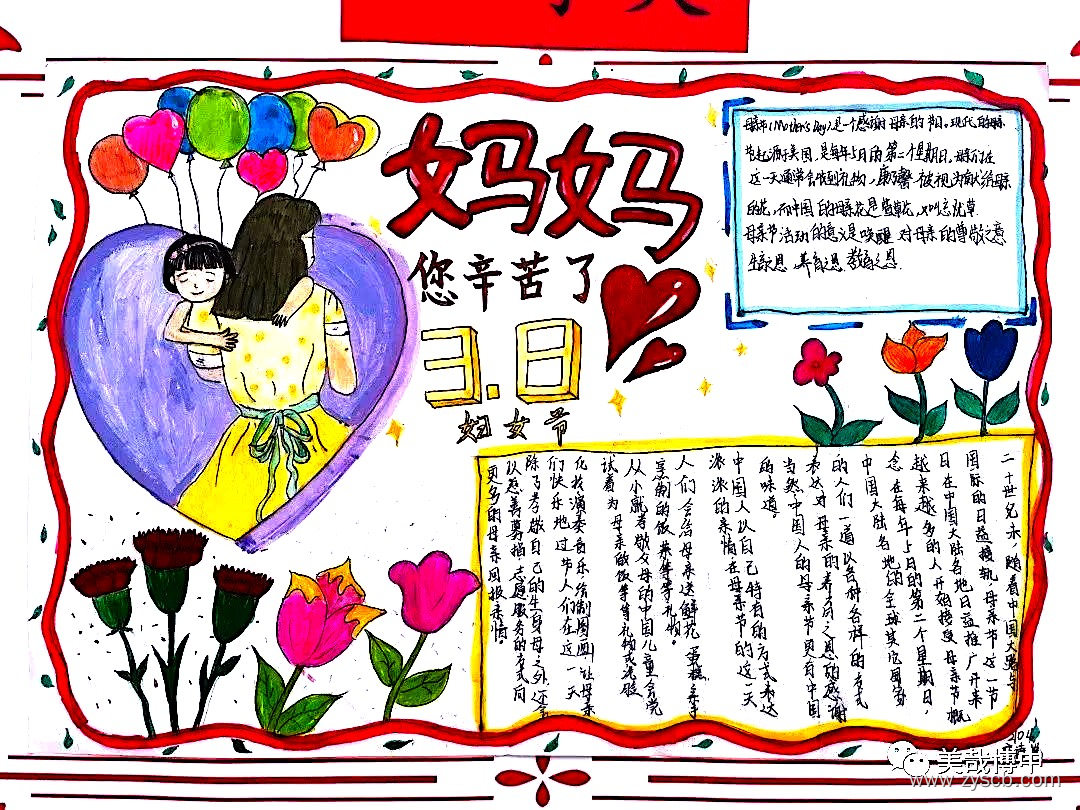 妈妈
您辛苦了
3.8
妇女节
母亲节(Mother's Day)是一个感谢母亲的节日。现代的母亲
节起源于美国,是每年5月的第二个星期日。母亲们在
这一天通常会收到礼物,康乃馨被视为献给母亲
的花,而中国的母亲花是萱草花,又叫忘忧草。
母亲节活动的意义是唤醒对母亲的尊敬之意
生育之恩 养育之恩 教育之恩.
二十世纪末,随着中国大陆与
国际的日益接轨,母亲节这一节
日在中国大陆各地日益推广开来
越来越多的人开始接受母亲节概
念,在每年5月的第二个星期日,
中国大陆各地的全球其它国家
的人们一道以各种各样的方式
表达对母亲的养育之恩的感谢
当然中国人的母亲节更有中国
的味道。
中国人以自己特有的方式表达
浓浓的亲情在母亲节的这一天
人们会给母亲送鲜花 蛋糕 亲手
烹制的饭菜等等礼物。
从小就孝敬父母的中国儿童会党
试着为母亲做饭等等礼物或洗脸
化妆演奏音乐绘制图画,让母亲
们快乐地过节人们在这一天
除了孝敬自己的生身母之外还会
以慈善募捐 志愿服务的方式向
更多的母亲回报亲情。
美哉博申
www.zyscb.com